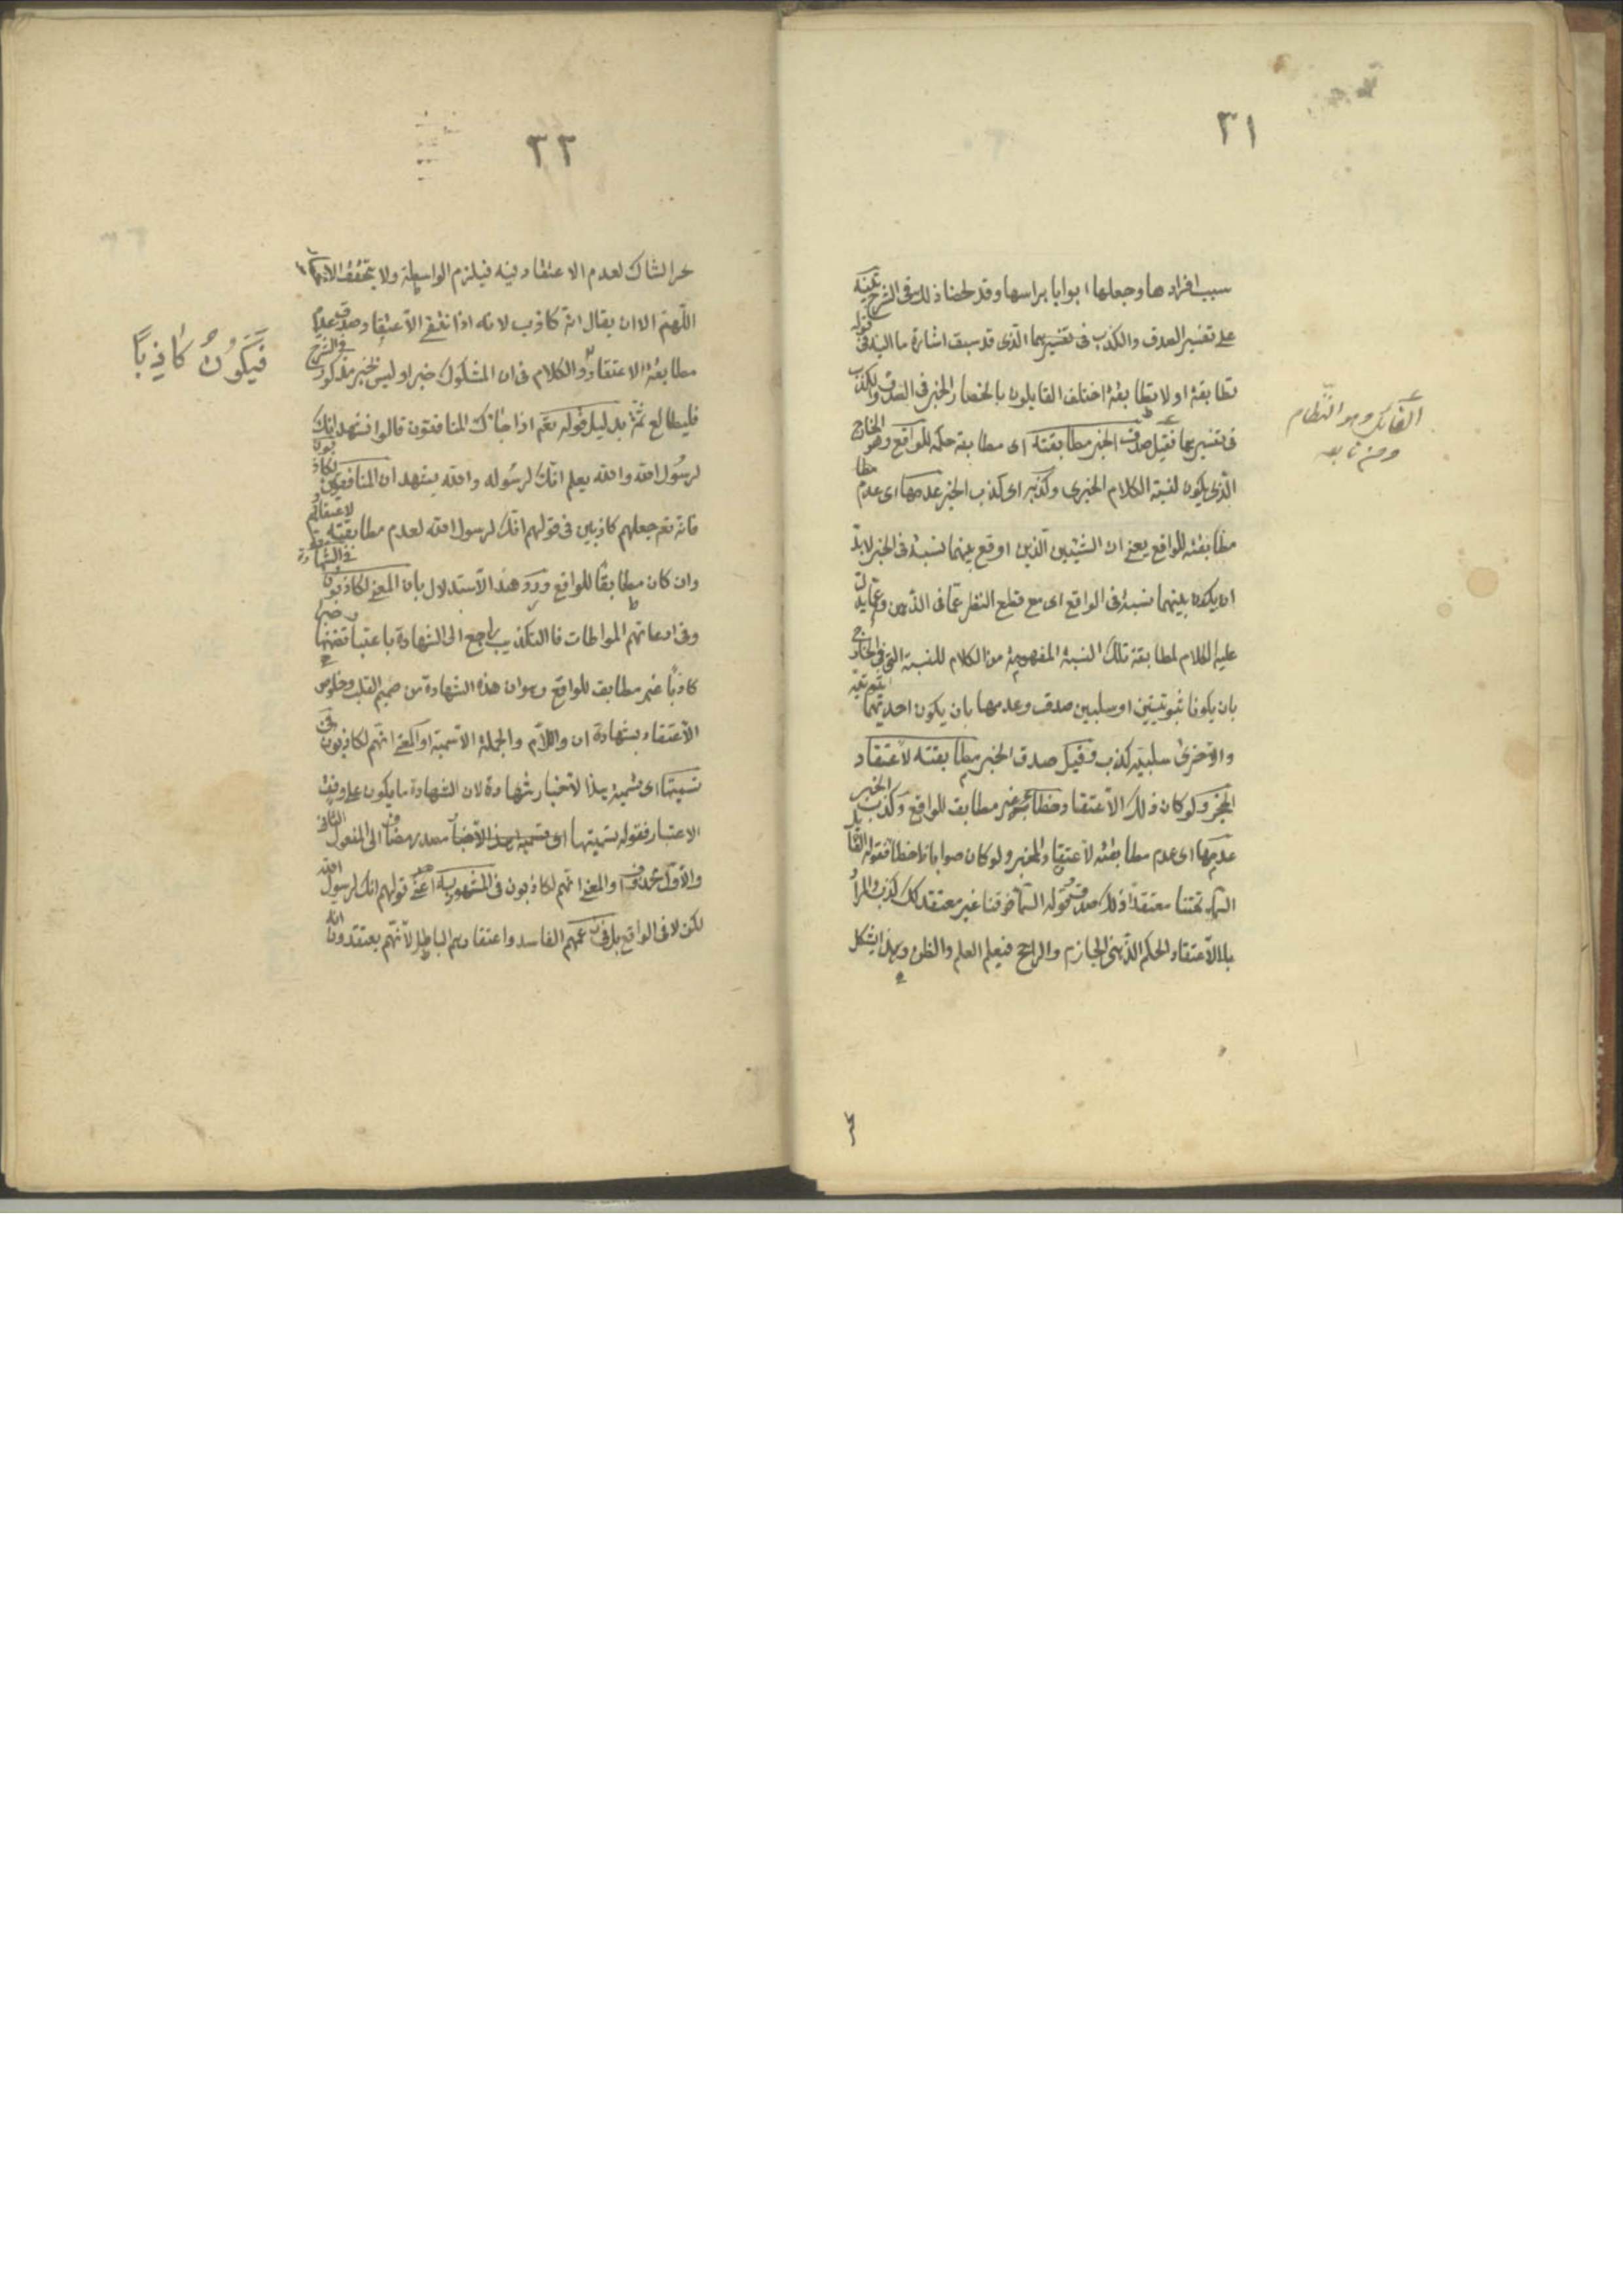 ٣١
سبب افرادها وجعلها ابوابا براسها وقد لخصنا ذلك فى الشرح تنبيه
على تفسير الصدق والكذب فى تفسيرهما الذى قد سبق اشارة ما اليه فى قوله
تطابقه او لا تطابقه اختلف القايلون بانحصار الخبر فى الصدق والكذب
فى تفسيرهما فقيل صدق الخبر مطابقته اى مطابقة حكمه للواقع وهو الخارج
الذى يكون لنسبة الكلام الخبرى وكذبه اى كذب الخبر عدمها اى عدم
مطابقته للواقع يعنى ان الشيئين الذين اوقع بينهما نسبة فى الخبر لابد
ان يكون بينهما نسبة فى الواقع اى مع قطع النظر عما فى الذهن وعما يدل
عليه الكلام لمطابقة تلك النسبة المفهومة من الكلام للنسبة التى فى الخارج
بان يكونا ثبوتيتين او سلبيين صدق وعدمها بان يكون احديهما ثبوتية
والاخرى سلبية كذب وقيل صدق الخبر مطابقته لاعتقاد
المخبر ولو كان ذلك الاعتقاد خطأ غير مطابق للواقع وكذب الخبر
عدمها اى عدم مطابقته لاعتقاد المخبر ولو كان صوابا لا خطأ فقول القائل
السماء تحتنا معتقدا ذلك صدق وقوله السماء فوقنا غير معتقد لك كذب والمراد
بالاعتقاد الحكم الذهنى الجازم والراجح فيعم العلم والظن وبهذا يشكل
القائل وهو النظام
ومن تابعه
٣٢
خبر الشاك لعدم الاعتقاد فيه فيلزم الواسطة ولا يتحقق الانحصار
اللهم الا ان يقال انه كاذب لانه اذا انتفى الاعتقاد صدق عدم
مطابقة الاعتقاد والكلام فى ان المشكوك خبر او ليس بخبر مذكور فى الشرح
فليطالع ثمة بدليل قوله تعم اذا جاءك المنافقون قالوا نشهد انك
لرسول الله والله يعلم انك لرسوله والله يشهد ان المنافقين لكاذبون
فانه تعم جعلهم كاذبين فى قولهم انك لرسول الله لعدم مطابقته لاعتقادهم
وان كان مطابقا للواقع ورد هذا الاستدلال بان المعنى لكاذبون فى الشهادة
وفى ادعائهم المواطات فالتكذيب راجع الى الشهادة باعتبار تضمنها خبرا
كاذبا غير مطابق للواقع وهو ان هذه الشهادة من صميم القلب وخلوص
الاعتقاد بشهادة ان واللام والجملة الاسمية او المعنى انهم لكاذبون فى
تسميتها اى تسمية هذا الاخبار شهادة لان الشهادة ما يكون على وفق
الاعتبار فقوله تسميتها اى تسمية هذا الاخبار مصدر مضاف الى المفعول الثانى
والاول محذوف او المعنى انهم لكاذبون فى المشهود به اعنى قولهم انك لرسول الله
لكن لا فى الواقع بل فى زعمهم الفاسد واعتقادهم الباطل لانهم يعتقدون انه
فَيَكُونُ كَاذِباً